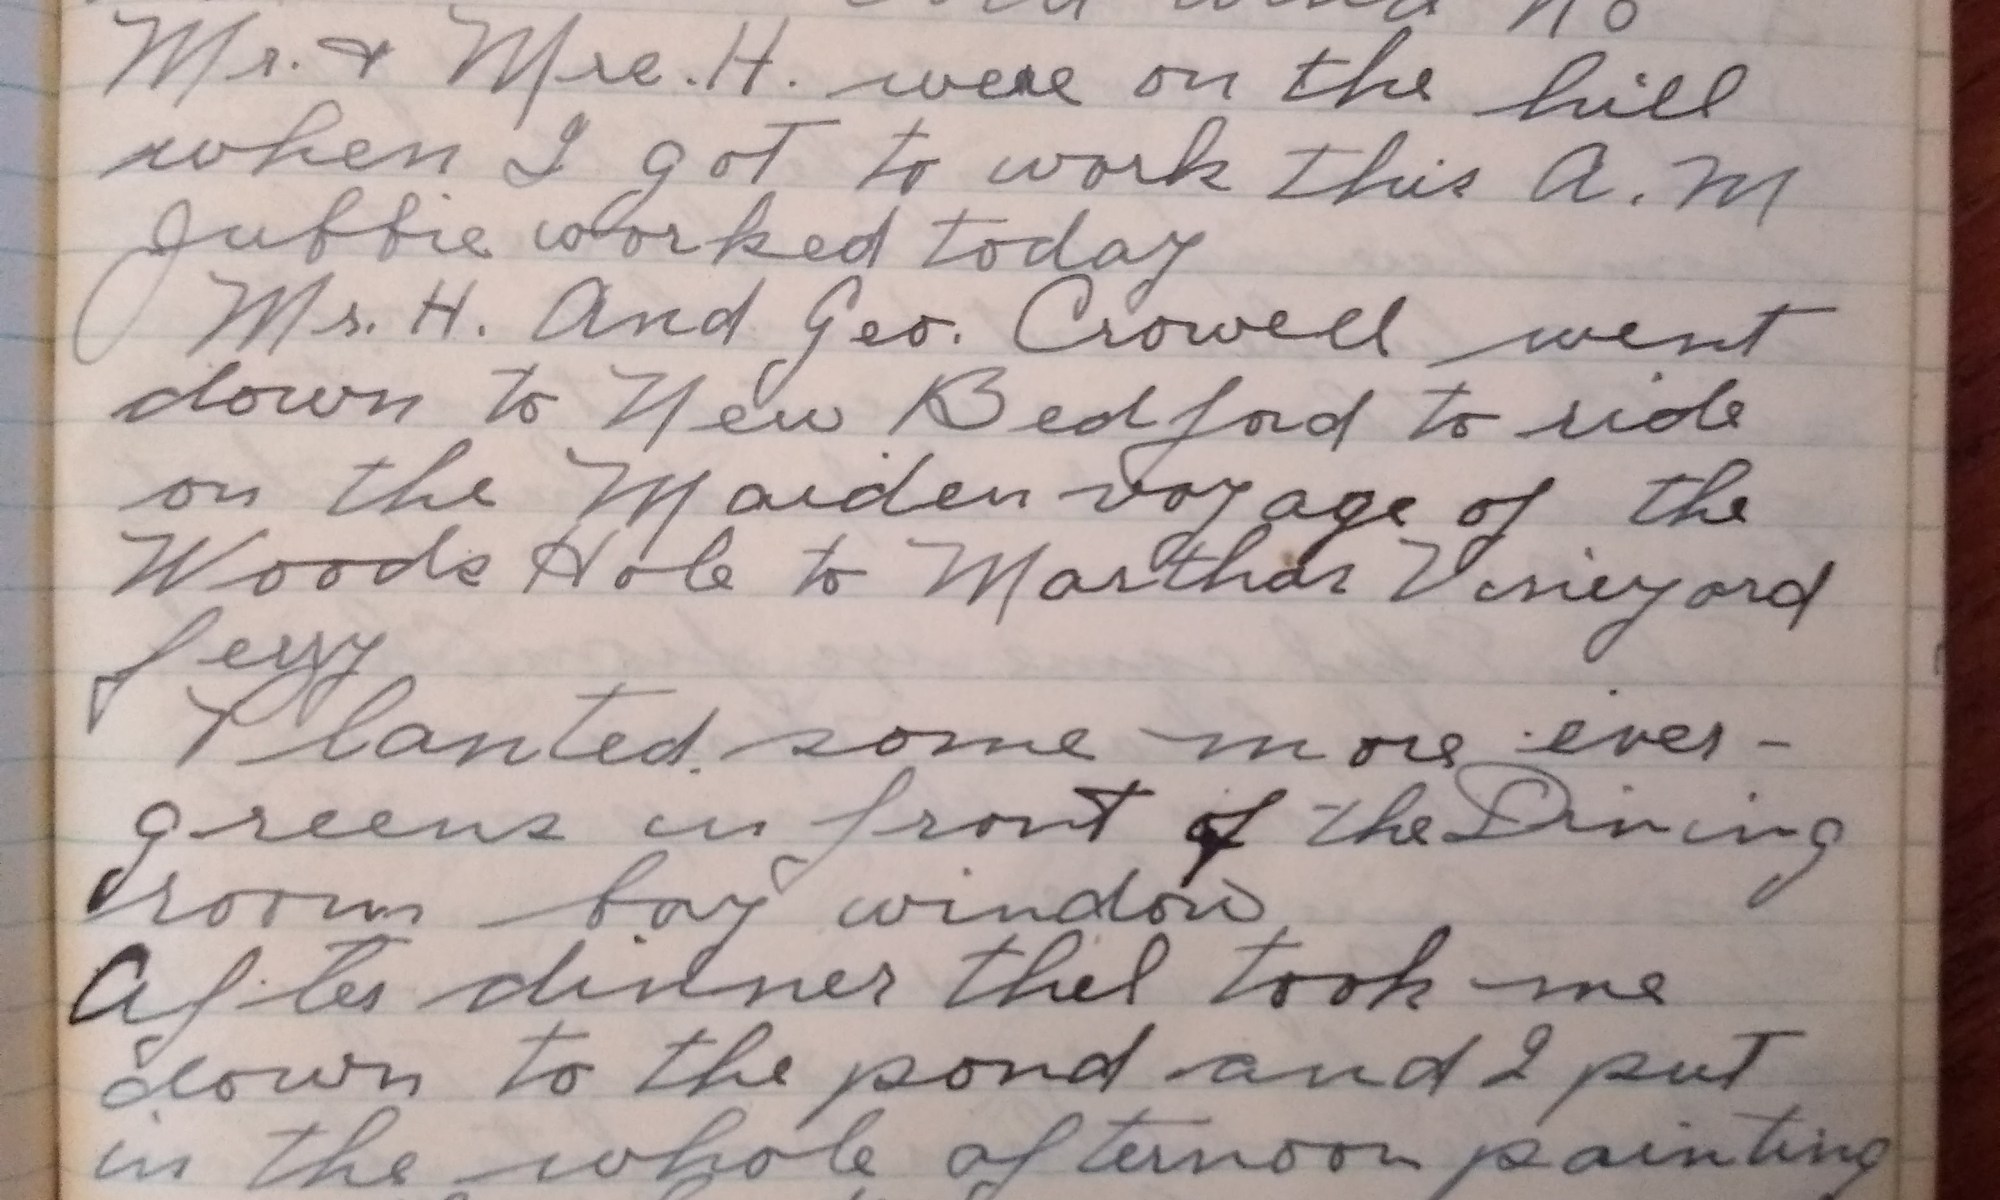 cold wind no
Mr. & Mrs. H. were on the hill
when I got to work this A.M
Jubbie worked today
Mr. H. And Geo. Crowell went
down to New Bedford to ride
on the Maiden voyage of the
Woods Hole to Marthas Vineyard
ferry
Planted some more ever-
greens in front of the Dining
room bay window
After dinner thel took me
down to the pond and I put
in the whole afternoon painting